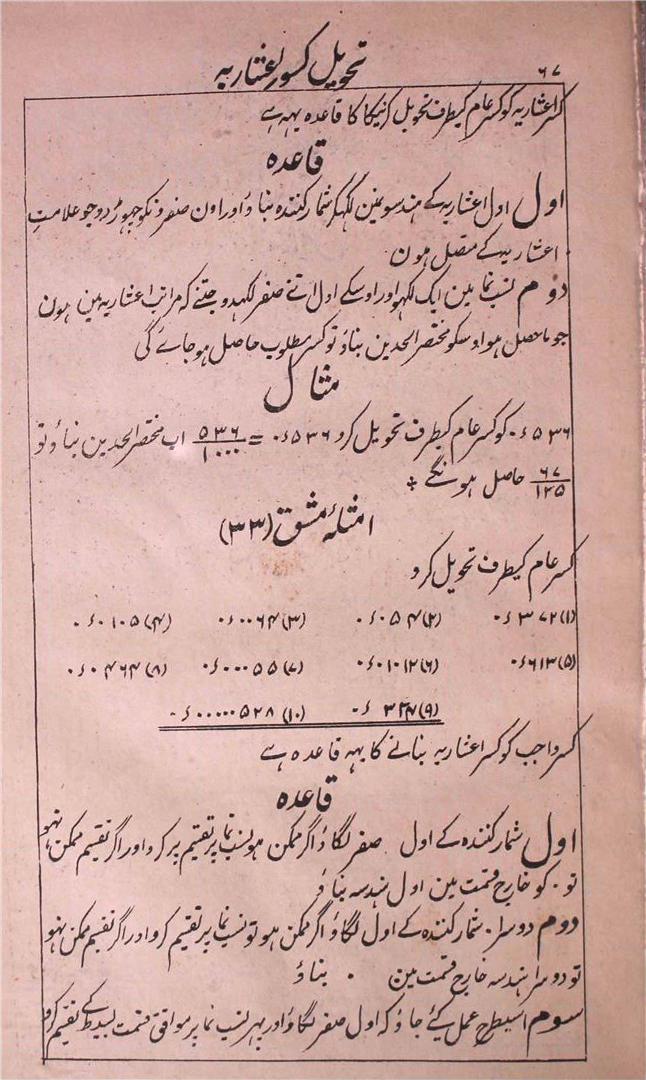 ۶۷
تحویل کسور اعشاریہ
کسر اعشاریہ کو کسر عام کیطرف تحویل کرنیکا قاعدہ یہہ ہے
قاعدہ
اول اول اعشاریہ کے ہندسونمین لکہکر شمار کنندہ بناؤ اور اون صفرونکو چہوڑ دو جو علامتِ
اعشاریہ کے متصل ہون
دوم نسب نما مین ایک لکہو اور اوسکے اول اتنے صفر لکہدو جتنے کہ مراتب اعشاریہ مین ہون
جو ماحصل ہو اوسکو مختصر الحدین بناؤ تو کسر مطلوب حاصل ہوجائے گی
مثال
۵۳۶ء۰ کو کسر عام کیطرف تحویل کرو ۵۳۶ء۰ = ۵۳۶/۱۰۰۰ اب مختصر الحدین بناؤ تو
۶۷/۱۲۵ حاصل ہونگے
امثلہ مشق (۳۳)
کسر عام کیطرف تحویل کرو
(۱) ۳۷۲ء۰ (۲) ۰۵۴ء۰ (۳) ۰۰۶۴ء۰ (۴) ۰۱۰۵ء۰
(۵) ۶۱۳ء۰ (۶) ۰۱۰۱۲ء۰ (۷) ۰۰۰۵۵ء۰ (۸) ۰۴۶۴ء۰
(۹) ۳۲۴ء۰ (۱۰) ۰۰۰۰۰۵۲۸ء۰
کسر واجب کو کسر اعشاریہ بنانے کا یہہ قاعدہ ہے
قاعدہ
اول شمار کنندہ کے اول صفر لگاؤ اگر ممکن ہو نسب نما پر تقسیم کرو اور اگر تقسیم ممکن نہو
تو ۰ کو خارج قسمت مین اول ہندسہ بناؤ
دوم دوسرا ۰ شمار کنندہ کے اول لگاؤ اگر ممکن ہو تو نسب نما پر تقسیم کرو اور اگر تقسیم ممکن نہو
تو دوسرا ہندسہ خارج قسمت مین ۰ بناؤ
سوم اسیطرح عمل کیئے جاؤ کہ اول صفر لگاؤ اور پہر نسب نما پر موافق قسمت بسیط کے تقسیم کرو